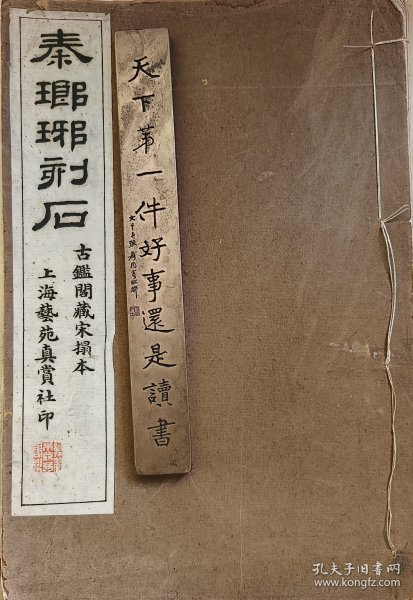 秦瑯琊刻石
古鑑閣藏宋搨本
上海藝苑真賞社印
天下第一件好事還是讀書
孔夫子旧书网